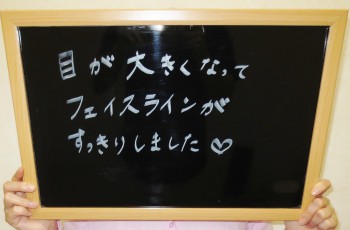 目が大きくなって
フェイスラインが
すっきりしました♡